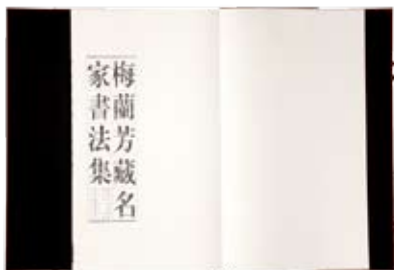 梅蘭芳藏名
家書法集